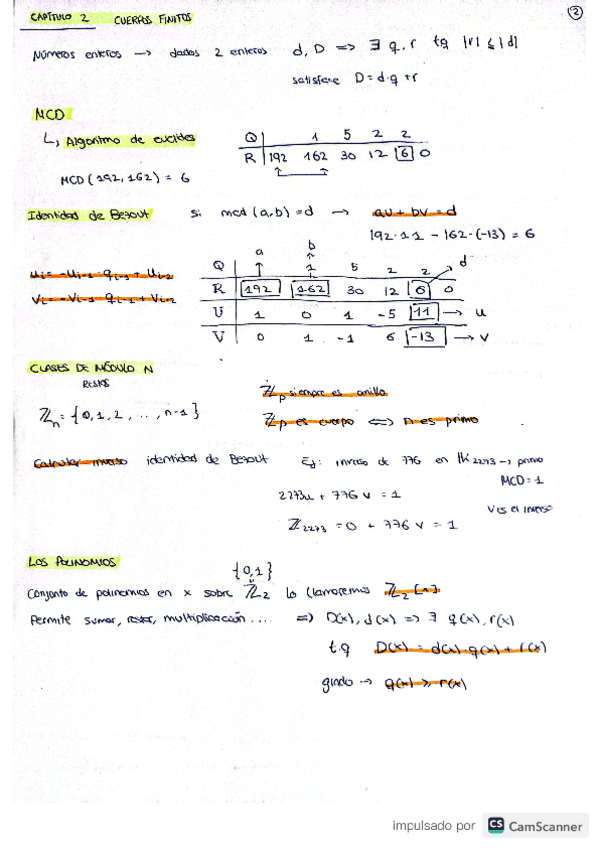 CAPÍTULO 2 CUERPOS FINITOS
2
Números enteros → dados 2 enteros d, D => ∃ q, r tq |r| ≤ |d|
satisface D = d·q + r
MCD
↳ Algoritmo de euclides
Q | 1 5 2 2
R | 192 162 30 12 6 0
MCD (192, 162) = 6
Identidad de Bezout si mcd (a,b) = d → au + bv = d
192·11 - 162·(-13) = 6
a b
Q | ↑ 1 5 2 2 d
R | 192 162 30 12 6 0
ui = -ui-1 · qi-1 + ui-2
vi = -vi-1 qi-1 + vi-2
U | 1 0 1 -5 11 → u
V | 0 1 -1 6 -13 → v
CLASES DE MÓDULO N
RESTOS
ℤp siempre es anillo
ℤn = {0,1,2, ..., n-1}
ℤp es cuerpo <=> n es primo
Calcular inverso identidad de Bezout Ej: inverso de 776 en 2273 → primo
MCD = 1
2273u + 776v = 1
v es el inverso
ℤ2273 = 0 + 776v = 1
LOS POLINOMIOS
{0,1}
Conjunto de polinomios en x sobre ℤ2 lo llamaremos ℤ2[x]
Permite sumar, restar, multiplicación .... => D(x), d(x) => ∃ q(x), r(x)
t.q D(x) = d(x)·q(x) + r(x)
grado → q(x) > r(x)
impulsado por CS CamScanner